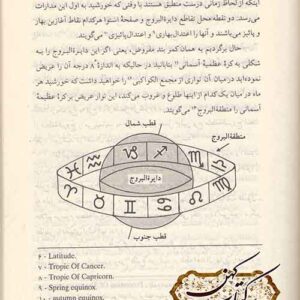 اینکه از لحاظ زمانی درست منطبق هستند با وقتی که خورشید به اول این مدارات
می‌رسد. دو نقطه محل تقاطع دایرةالبروج و صفحهٔ استوا هرکدام نقاط آغازین بهار
و پائیز می‌باشند و آنها را اعتدال‌بهاری۹ و اعتدال‌پائیزی۱۰ می‌گویند.
حال برگردیم به همان کمر بند مفروض، یعنی اگر این دایرةالبروج را به
شکلی به کرهٔ عظمیهٔ آسمانی بتابانید در حالیکه به اندازهٔ ۸ درجه آن را عریض
نموده‌اید در میان آن نواری از مجمع الکواکبی را خواهید داشت که خورشید هر
ماه در میان یک کدام از اینها طلوع و غروب می‌کند، این نوار عریض بر کرهٔ عظیمهٔ
آسمانی را منطقةالبروج می‌گویند.
قطب شمال
منطقةالبروج
دایرةالبروج
♓ ♒ ♑ ♐ ♏ ♎
♈ ♉ ♊ ♋ ♌ ♍
قطب جنوب
۶ - Latitude.
۷ - Tropic Of Cancer.
۸ - Tropic Of Capricorn.
۹ - Spring equinox.
۱۰ - autumn equinox.